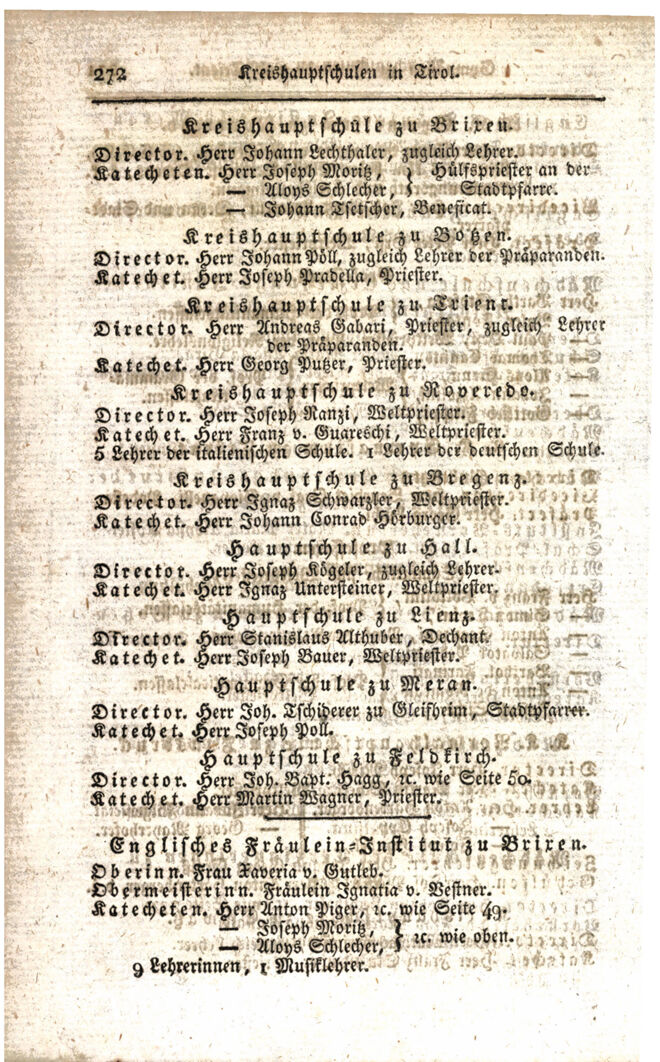 272 Kreishauptschulen in Tirol.
Kreishauptschule zu Brixen.
Director. Herr Johann Lechthaler, zugleich Lehrer.
Katecheten. Herr Joseph Moritz, } Hülfspriester an der
— Aloys Schlecher, } Stadtpfarre.
— Johann Tsetscher, Beneficat.
Kreishauptschule zu Botzen.
Director. Herr Johann Pöll, zugleich Lehrer der Präparanden.
Katechet. Herr Joseph Pradella, Priester.
Kreishauptschule zu Trient.
Director. Herr Andreas Gabari, Priester, zugleich Lehrer
der Präparanden.
Katechet. Herr Georg Putzer, Priester.
Kreishauptschule zu Roveredo.
Director. Herr Joseph Ranzi, Weltpriester.
Katechet. Herr Franz v. Guareschi, Weltpriester.
5 Lehrer der italienischen Schule. 1 Lehrer der deutschen Schule.
Kreishauptschule zu Bregenz.
Director. Herr Ignaz Schwarzler, Weltpriester.
Katechet. Herr Johann Conrad Hörburger.
Hauptschule zu Hall.
Director. Herr Joseph Kögeler, zugleich Lehrer.
Katechet. Herr Ignaz Untersteiner, Weltpriester.
Hauptschule zu Lienz.
Director. Herr Stanislaus Althuber, Dechant.
Katechet. Herr Joseph Bauer, Weltpriester.
Hauptschule zu Meran.
Director. Herr Joh. Tschiderer zu Gleifheim, Stadtpfarrer.
Katechet. Herr Joseph Poll.
Hauptschule zu Feldkirch.
Director. Herr Joh. Bapt. Hagg, ꝛc. wie Seite 50.
Katechet. Herr Martin Wagner, Priester.
Englisches Fräulein-Institut zu Brixen.
Oberinn. Frau Xaveria v. Gutleb.
Obermeisterinn. Fräulein Ignatia v. Vestner.
Katecheten. Herr Anton Piger, ꝛc. wie Seite 49.
— Joseph Moritz, } ꝛc. wie oben.
— Aloys Schlecher, }
9 Lehrerinnen, 1 Musiklehrer.